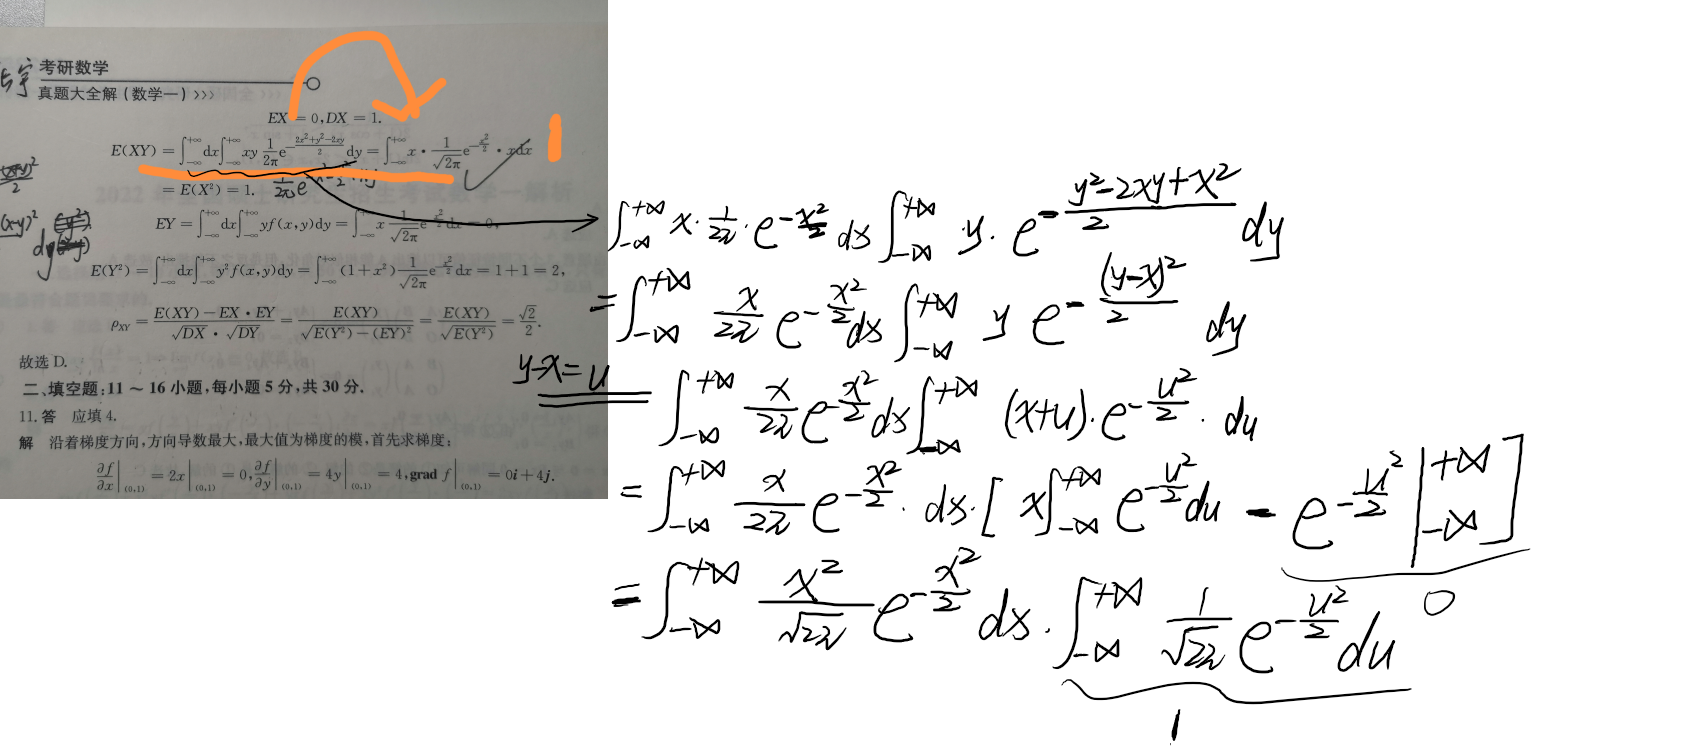 考研数学
真题大全解(数学一)>>>
EX = 0, DX = 1.
E(XY) = ∫_{-∞}^{+∞} dx ∫_{-∞}^{+∞} xy 1/2π e^{-(2x²+y²-2xy)/2} dy = ∫_{-∞}^{+∞} x · 1/√2π e^{-x²/2} · xdx
= E(X²) = 1.
EY = ∫_{-∞}^{+∞} dx ∫_{-∞}^{+∞} yf(x,y)dy = ∫_{-∞}^{+∞} x 1/√2π e^{-x²/2} dx = 0,
E(Y²) = ∫_{-∞}^{+∞} dx ∫_{-∞}^{+∞} y²f(x,y)dy = ∫_{-∞}^{+∞} (1+x²) 1/√2π e^{-x²/2} dx = 1+1 = 2,
ρ_{XY} = (E(XY) - EX · EY)/(√DX · √DY) = E(XY)/√(E(Y²) - (EY)²) = E(XY)/√E(Y²) = √2/2.
故选 D.
二、填空题:11 ～ 16 小题,每小题 5 分,共 30 分.
11. 答 应填 4.
解 沿着梯度方向,方向导数最大,最大值为梯度的模,首先求梯度:
∂f/∂x|_{(0,1)} = 2x|_{(0,1)} = 0, ∂f/∂y|_{(0,1)} = 4y|_{(0,1)} = 4, grad f|_{(0,1)} = 0i + 4j.
1
∫_{-∞}^{+∞} x · 1/2π · e^{-x²/2} dx ∫_{-∞}^{+∞} y · e^{-(y²-2xy+x²)/2} dy
= ∫_{-∞}^{+∞} x/2π e^{-x²/2} dx ∫_{-∞}^{+∞} y e^{-(y-x)²/2} dy
y-x=u ∫_{-∞}^{+∞} x/2π e^{-x²/2} dx ∫_{-∞}^{+∞} (x+u) · e^{-u²/2} · du
= ∫_{-∞}^{+∞} x/2π e^{-x²/2} · dx · [x∫_{-∞}^{+∞} e^{-u²/2} du - e^{-u²/2}|_{-∞}^{+∞}]
0
= ∫_{-∞}^{+∞} x²/√2π e^{-x²/2} dx · ∫_{-∞}^{+∞} 1/√2π e^{-u²/2} du
1